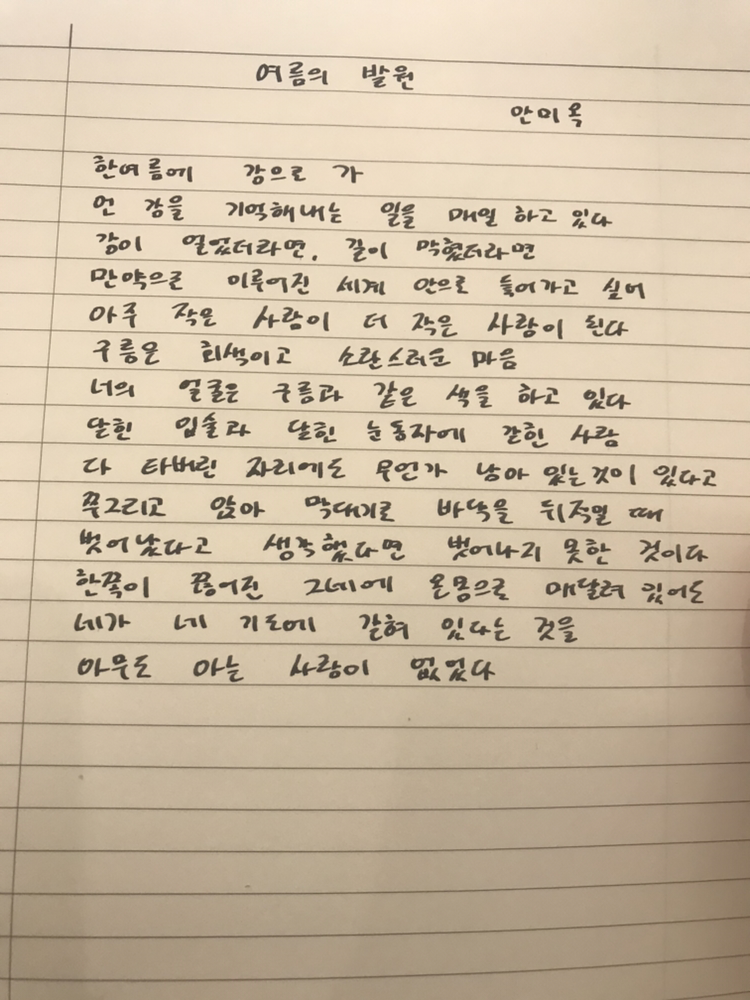 여름의 발원
안미옥
한여름에 강으로 가
언 강을 기억해내는 일을 매일 하고 있다
강이 얼었더라면, 길이 막혔더라면
만약으로 이루어진 세계 안으로 들어가고 싶어
아주 작은 사람이 더 작은 사람이 된다
구름은 회색이고 소란스러운 마음
너의 얼굴은 구름과 같은 색을 하고 있다
닫힌 입술과 닫힌 눈동자에 갇힌 사람
다 타버린 자리에도 무언가 남아 있는 것이 있다고
쭈그리고 앉아 막대기로 바닥을 뒤적일 때
벗어났다고 생각했다면 벗어나지 못한 것이다
한쪽이 끊어진 그네에 온몸으로 매달려 있어도
네가 네 기도에 갇혀 있다는 것을
아무도 아는 사람이 없었다